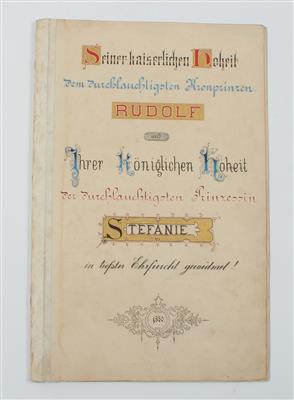 Seiner kaiserlichen Hoheit
dem durchlauchtigsten Kronprinzen
RUDOLF
und
Ihrer Königlichen Hoheit
der durchlauchtigsten Prinzessin
STEFANIE
in tiefster Ehrfurcht gewidmet!
1880